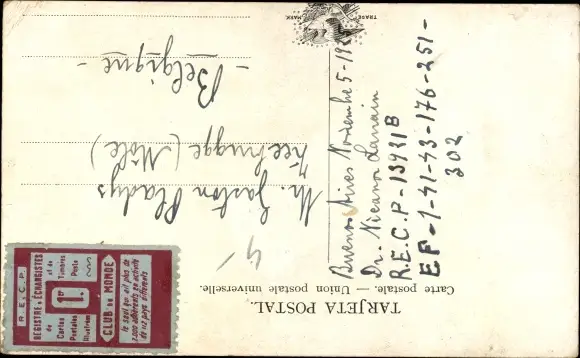 TARJETA POSTAL.
Carte postale. — Union postale universelle.
TRADE MARK
Mr. Gaston Pladys
Zeebrugge (Môle)
- Belgique -
Buenos Aires Noviembre 5-192
Dr. Nicanor Larrain
R.E.C.P-13921B
EF-1-41-43-176-251-
302
R.E.C.P.
REGISTRE D'ÉCHANGISTES
de
Cartes
Postales
Illustrées
1F.
et de
Timbres
Poste
CLUB DU MONDE
le seul qui ait plus de
2.000 adhérents en activité
de 112 pays différents